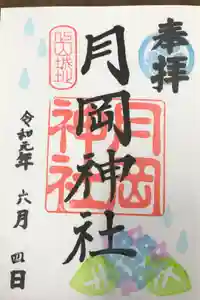 奉拝
月岡神社
月岡神社
令和元年
六月
四日